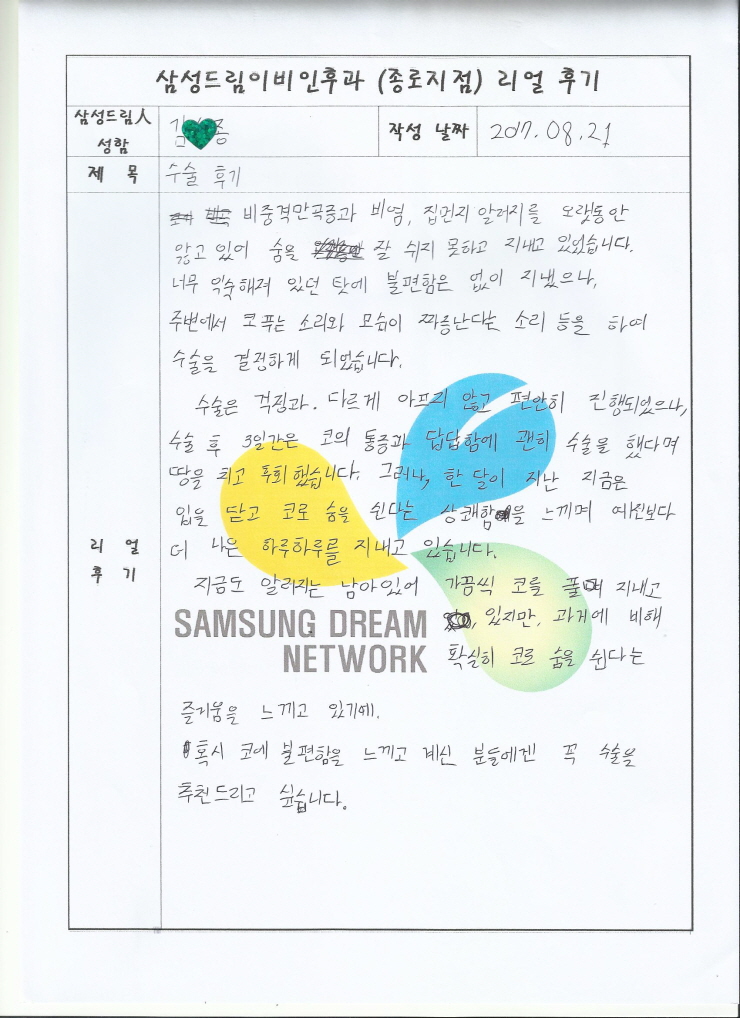 삼성드림이비인후과 (종로지점) 리얼 후기
삼성드림人 성함
김 종
작성 날짜
2017.08.21
제 목
수술 후기
리 얼 후 기
비중격만곡증과 비염, 집먼지 알러지를 오랫동안
앓고 있어 숨을 잘 쉬지 못하고 지내고 있었습니다.
너무 익숙해져 있던 탓에 불편함은 없이 지냈으나,
주변에서 코푸는 소리와 모습이 짜증난다는 소리 등을 하여
수술을 결정하게 되었습니다.
수술은 걱정과. 다르게 아프지 않고 편안히 진행되었으나,
수술 후 3일간은 코의 통증과 답답함에 괜히 수술을 했다며
땅을 치고 후회했습니다. 그러나, 한 달이 지난 지금은
입을 닫고 코로 숨을 쉰다는 상쾌함을 느끼며 예전보다
더 나은 하루하루를 지내고 있습니다.
지금도 알러지는 남아있어 가끔씩 코를 풀며 지내고
있지만, 과거에 비해
SAMSUNG DREAM
NETWORK
확실히 코로 숨을 쉰다는
즐거움을 느끼고 있기에.
혹시 코에 불편함을 느끼고 계신 분들에겐 꼭 수술을
추천드리고 싶습니다.